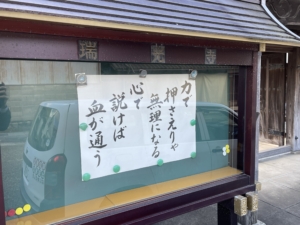 力で
押さえりゃ
無理になる
心で
説けば
血が通う